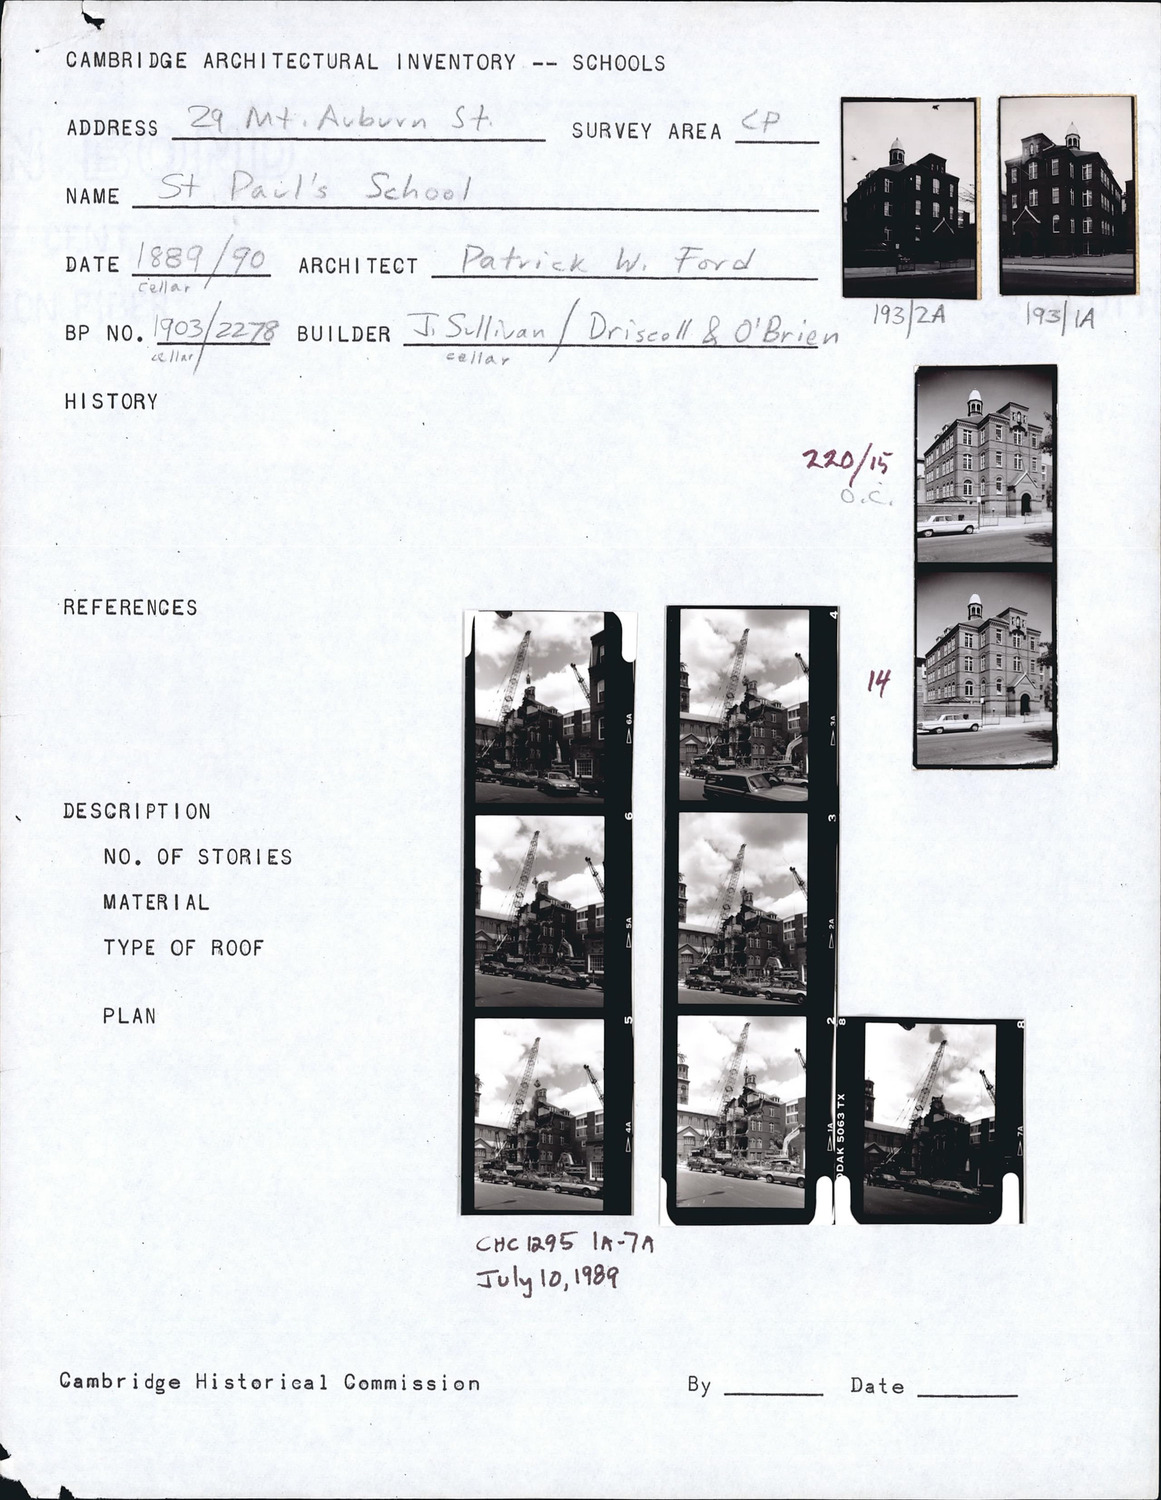 CAMBRIDGE ARCHITECTURAL INVENTORY -- SCHOOLS
ADDRESS 29 Mt. Auburn St. SURVEY AREA CP
NAME St Paul's School
DATE 1889/90 ARCHITECT Patrick W. Ford
cellar
BP NO. 1903/2278 BUILDER J. Sullivan / Driscoll & O'Brien
cellar cellar
193/2A 193/1A
HISTORY
220/15
O.C.
REFERENCES
14
DESCRIPTION
NO. OF STORIES
MATERIAL
TYPE OF ROOF
PLAN
4
6A 3A
6 3
5A 2A
5 2 8 8
4A 1A 7A
ODAK 5063 TX
CHC 1295 1A-7A
July 10, 1989
Cambridge Historical Commission By Date